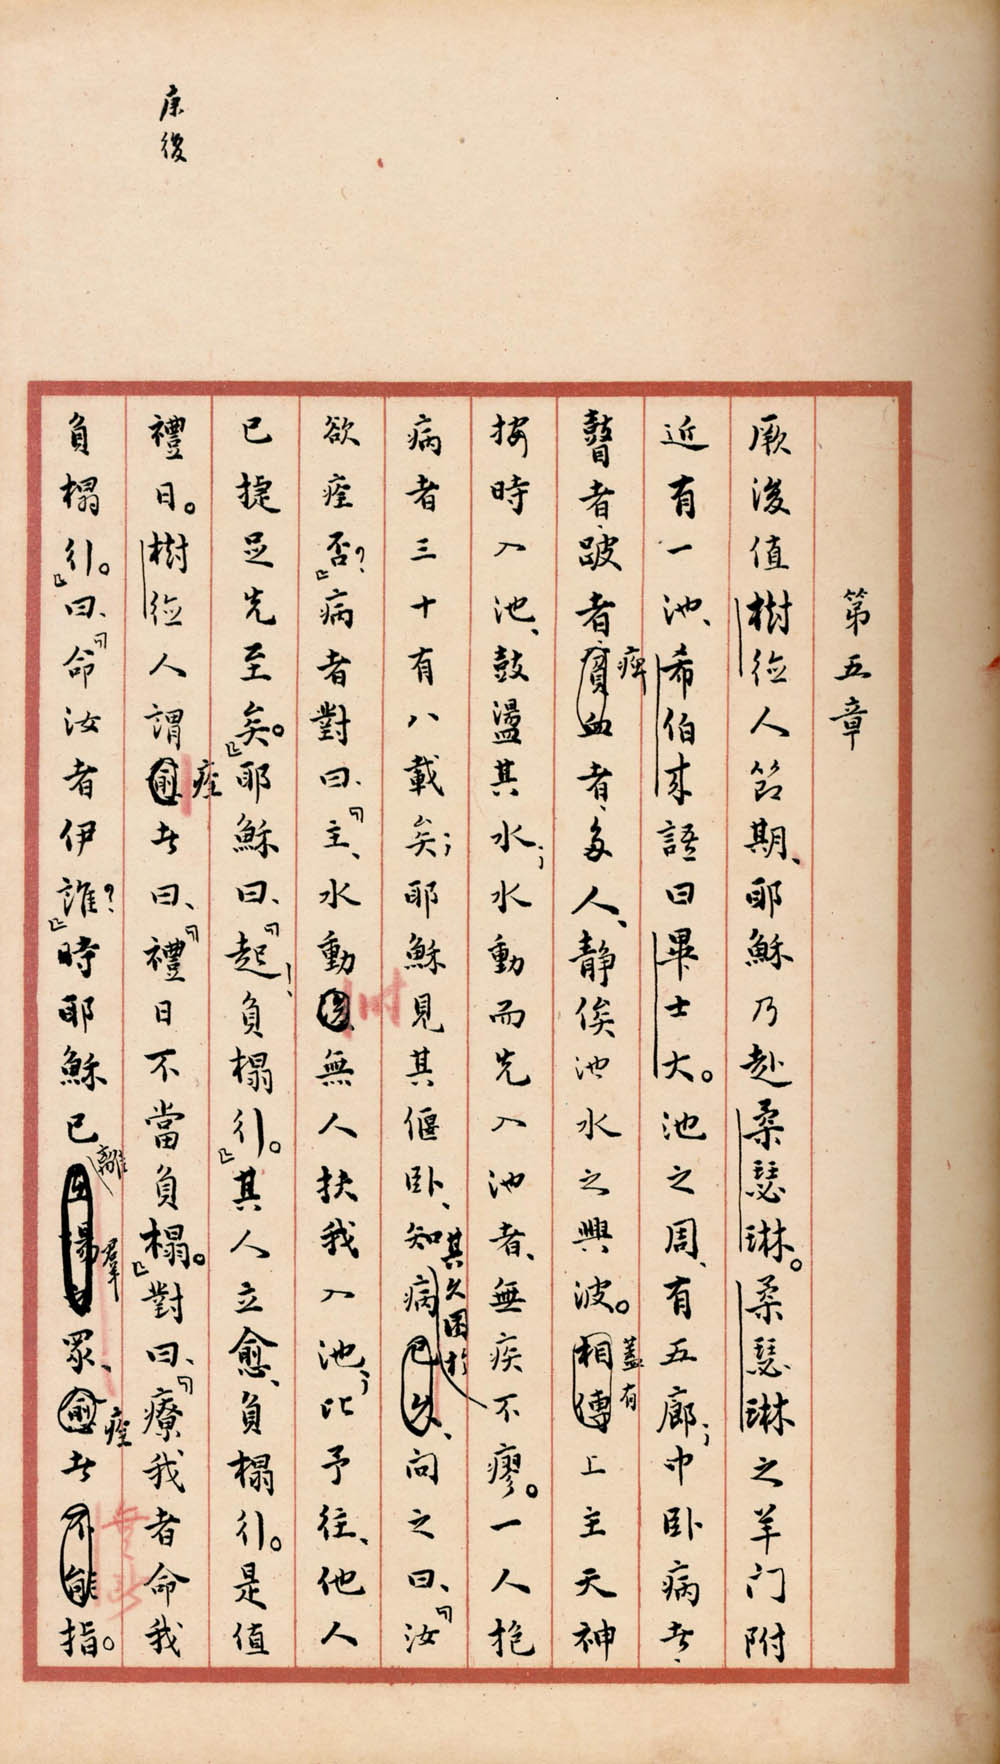 康復
第五章
厥後值樹䘵人節期、耶穌乃赴柔瑟琳。柔瑟琳之羊门附
近有一池、希伯來語曰畢士大。池之周、有五廊;中卧病者、
瞽者、跛者、貧血者、多人、静俟池水之興波。相傳上主天神
痺
蓋有
按時入池、鼓盪其水;水動而先入池者、無疾不瘳。一人抱
病者三十有八載矣;耶穌見其偃卧、知病已久、向之曰、『汝
其久困於
欲痊否?』病者對曰、『主、水動後無人扶我入池;比予往、他人
時
已捷足先至矣。』耶穌曰、『起!負榻行。』其人立愈、負榻行。是值
禮日。樹䘵人謂愈者曰、『禮日不當負榻。』對曰、『療我者命我
痊
負榻行。』曰、『命汝者伊誰?』時耶穌已眾、愈者不能指。
離
羣
痊
無所